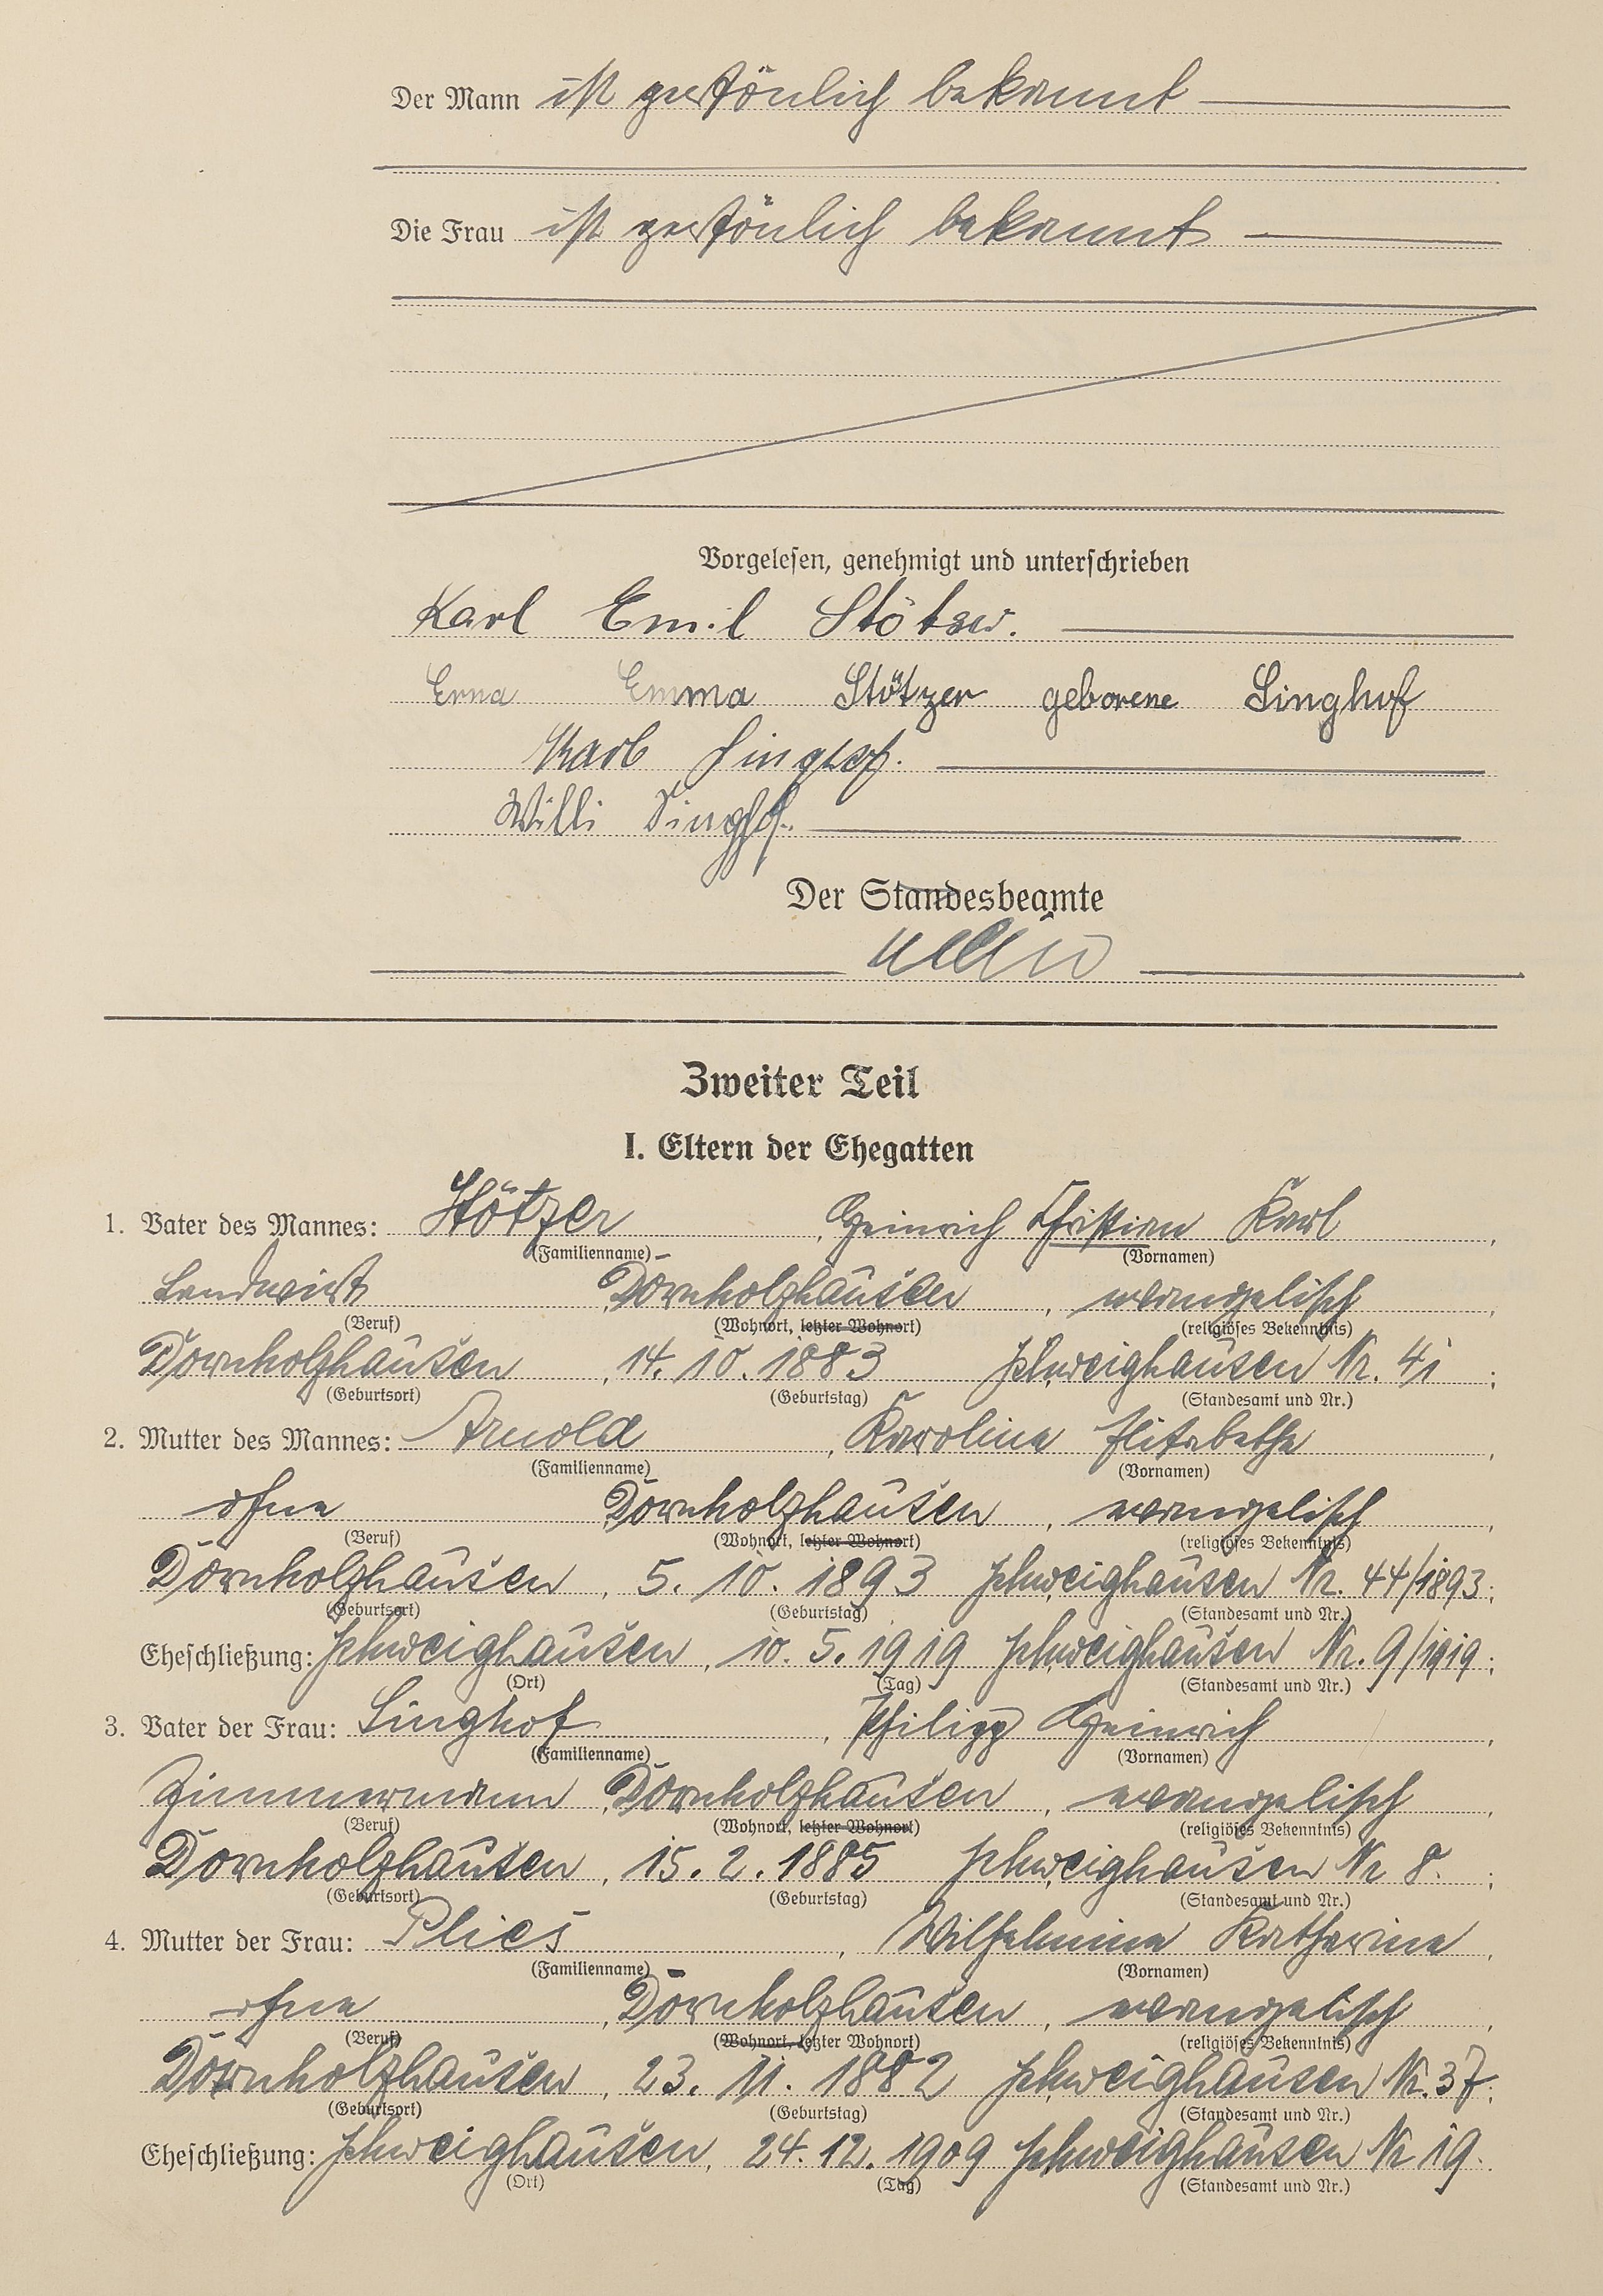 Der Mann ist persönlich bekannt
Die Frau ist persönlich bekannt
Vorgelesen, genehmigt und unterschrieben
Karl Emil Stötzer.
Erna Emma Stötzer geborene Singhof
Karl Singhof.
Willi Singhof.
Der Standesbeamte
Zweiter Teil
I. Eltern der Ehegatten
1. Vater des Mannes: Stötzer, Heinrich Christian Karl,
(Familienname) (Vornamen)
Landwirt, Dornholzhausen, evangelisch,
(Beruf) (Wohnort, letzter Wohnort) (religiöses Bekenntnis)
Dornholzhausen, 14. 10. 1883 Schweighausen Nr. 41;
(Geburtsort) (Geburtstag) (Standesamt und Nr.)
2. Mutter des Mannes: Arnold, Karoline Elisabethe,
(Familienname) (Vornamen)
ohne Dornholzhausen, evangelisch,
(Beruf) (Wohnort, letzter Wohnort) (religiöses Bekenntnis)
Dornholzhausen, 5. 10. 1893 Schweighausen Nr. 44/1893;
(Geburtsort) (Geburtstag) (Standesamt und Nr.)
Eheschließung: Schweighausen, 10. 5. 1919 Schweighausen Nr. 9/1919;
(Ort) (Tag) (Standesamt und Nr.)
3. Vater der Frau: Singhof, Philipp Heinrich,
(Familienname) (Vornamen)
Zimmermann, Dornholzhausen, evangelisch,
(Beruf) (Wohnort, letzter Wohnort) (religiöses Bekenntnis)
Dornholzhausen, 15. 2. 1885 Schweighausen Nr 8.;
(Geburtsort) (Geburtstag) (Standesamt und Nr.)
4. Mutter der Frau: Plies, Wilhelmine Katharine,
(Familienname) (Vornamen)
ohne, Dornholzhausen, evangelisch,
(Beruf) (Wohnort, letzter Wohnort) (religiöses Bekenntnis)
Dornholzhausen, 23. 11. 1882 Schweighausen Nr. 37;
(Geburtsort) (Geburtstag) (Standesamt und Nr.)
Eheschließung: Schweighausen, 24. 12. 1909 Schweighausen Nr 19.
(Ort) (Tag) (Standesamt und Nr.)